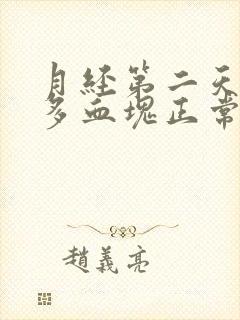 月经第二天
多血块正常
趙義亮